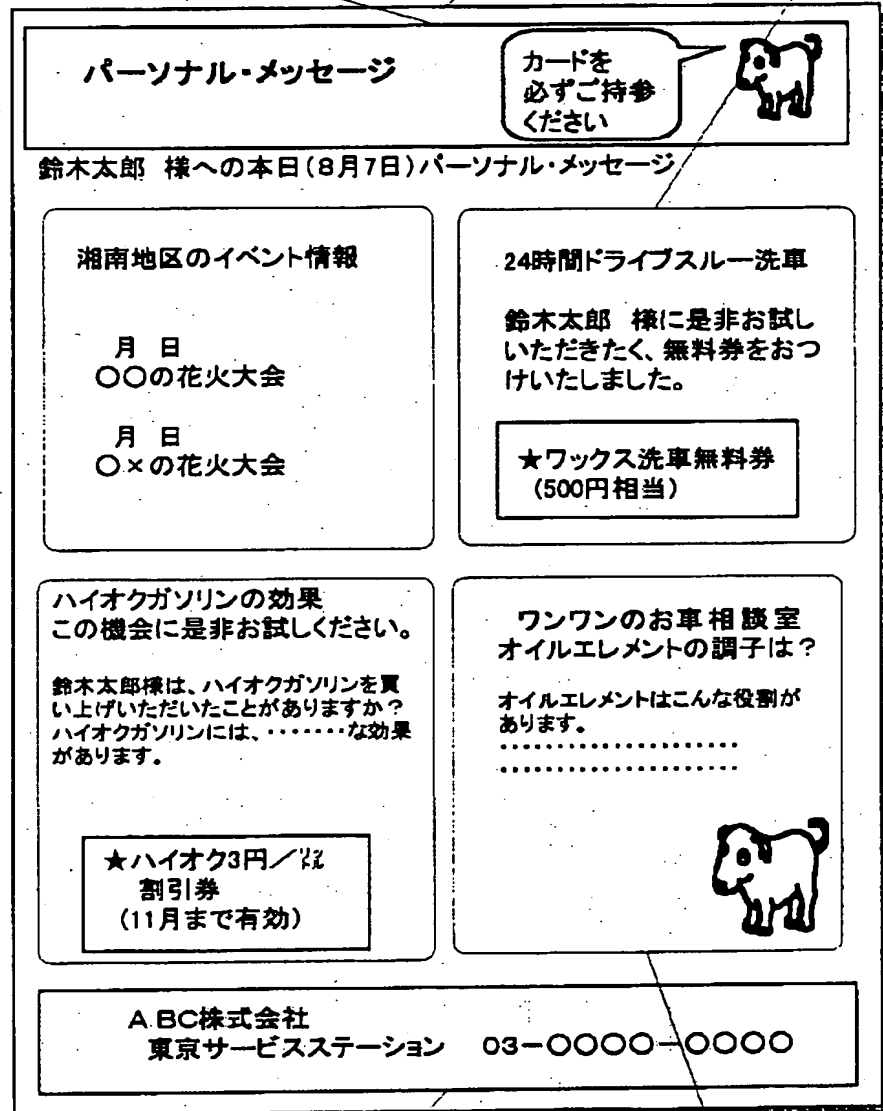 パーソナル・メッセージ
カードを
必ずご持参
ください
鈴木太郎 様への本日(8月7日)パーソナル・メッセージ
湘南地区のイベント情報
月 日
〇〇の花火大会
月 日
〇×の花火大会
24時間ドライブスルー洗車
鈴木太郎 様に是非お試し
いただきたく、無料券をおつ
けいたしました。
★ワックス洗車無料券
(500円相当)
ハイオクガソリンの効果
この機会に是非お試しください。
鈴木太郎様は、ハイオクガソリンを買
い上げいただいたことがありますか?
ハイオクガソリンには、・・・・・・・な効果
があります。
★ハイオク3円/リットル
割引券
(11月まで有効)
ワンワンのお車相談室
オイルエレメントの調子は?
オイルエレメントはこんな役割が
あります。
・・・・・・・・・・・・・・・・・・・・・
・・・・・・・・・・・・・・・・・・・・・
ABC株式会社
東京サービスステーション 03-〇〇〇〇-〇〇〇〇